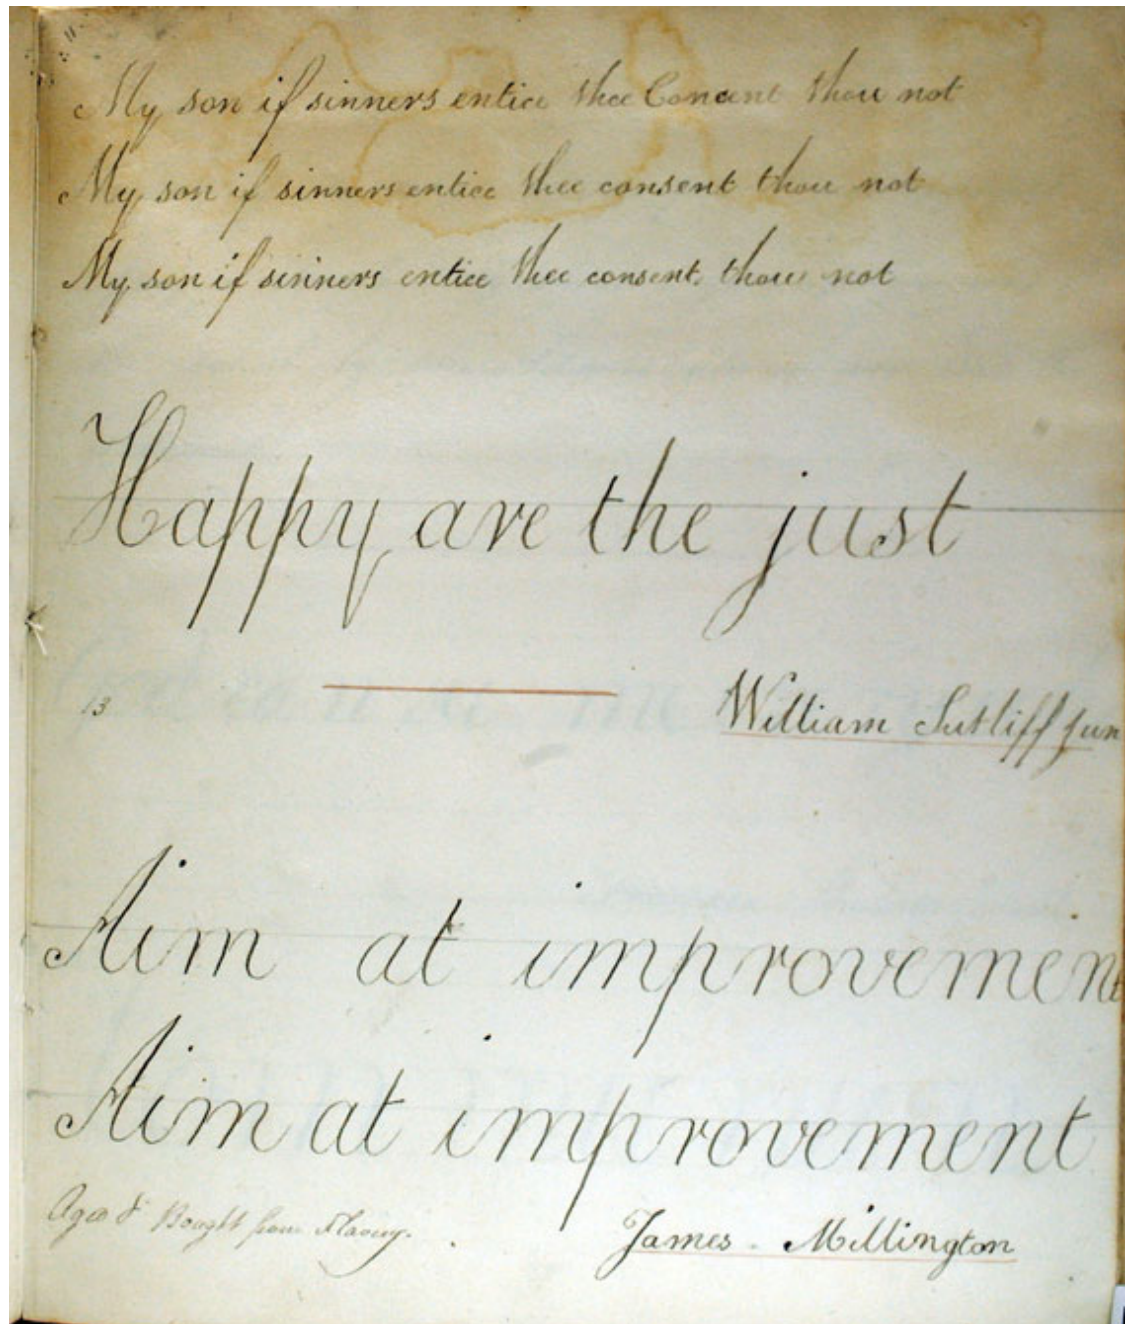 My son if sinners entice thee Concent thou not
My son if sinners entice thee consent thou not
My son if sinners entice thee consent thou not
Happy are the just
13
William Sutliff Jun
Aim at improvement
Aim at improvement
Aged 8 Bought from Slavery.
James Millington